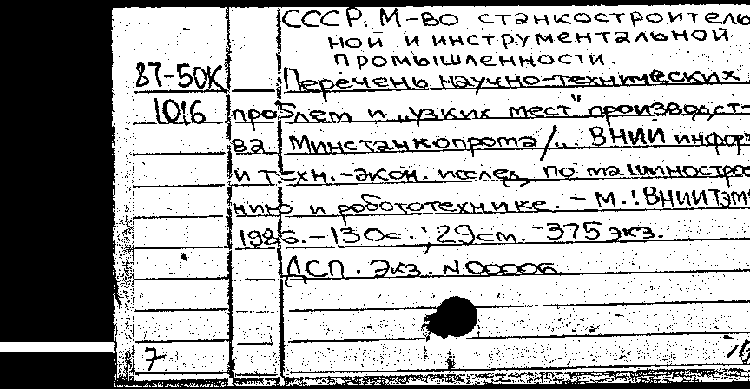 СССР. М-во станкостроитель
ной и инструментальной
промышленности.
87-50К Перечень научно-технических
1016 проблем и „узких мест" производст-
ва Минстанкопрома/... ВНИИ информ
и техн.-экон. исслед. по машинострое
нию и робототехнике. - М.: ВНИИТэм
198 .-130с.; 29см. -375 экз.
ДСП. Экз. N 00006
7